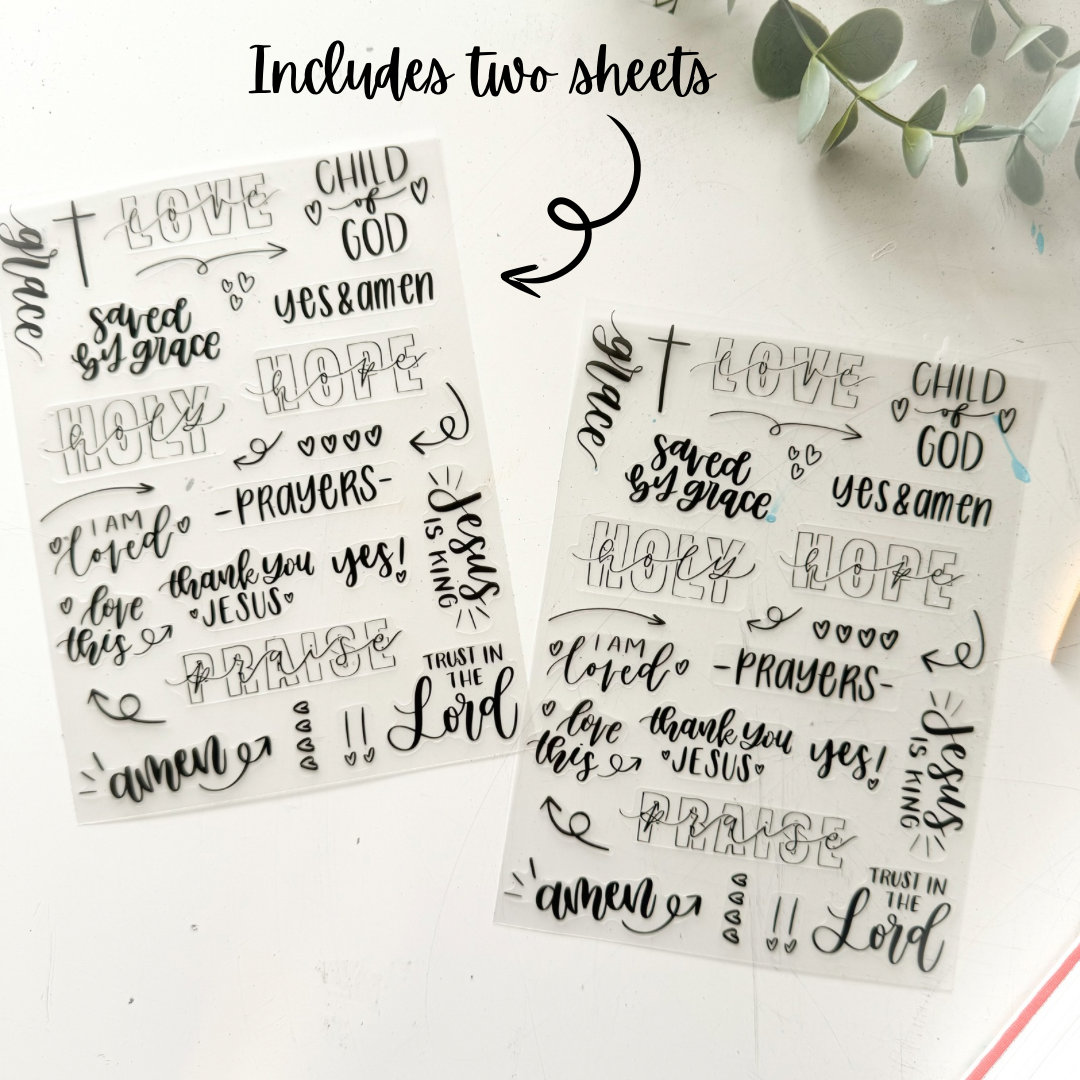 Includes two sheets
grace
LOVE
love
CHILD
of
GOD
saved
by grace
yes&amen
HOLY
holy
HOPE
hope
I AM
loved
-PRAYERS-
love
this
thank you
JESUS
yes!
Jesus
IS KING
PRAISE
praise
amen
!!
TRUST IN
THE
Lord
grace
LOVE
love
CHILD
of
GOD
saved
by grace
yes&amen
HOLY
holy
HOPE
hope
I AM
loved
-PRAYERS-
love
this
thank you
JESUS
yes!
Jesus
IS KING
PRAISE
praise
amen
!!
TRUST IN
THE
Lord